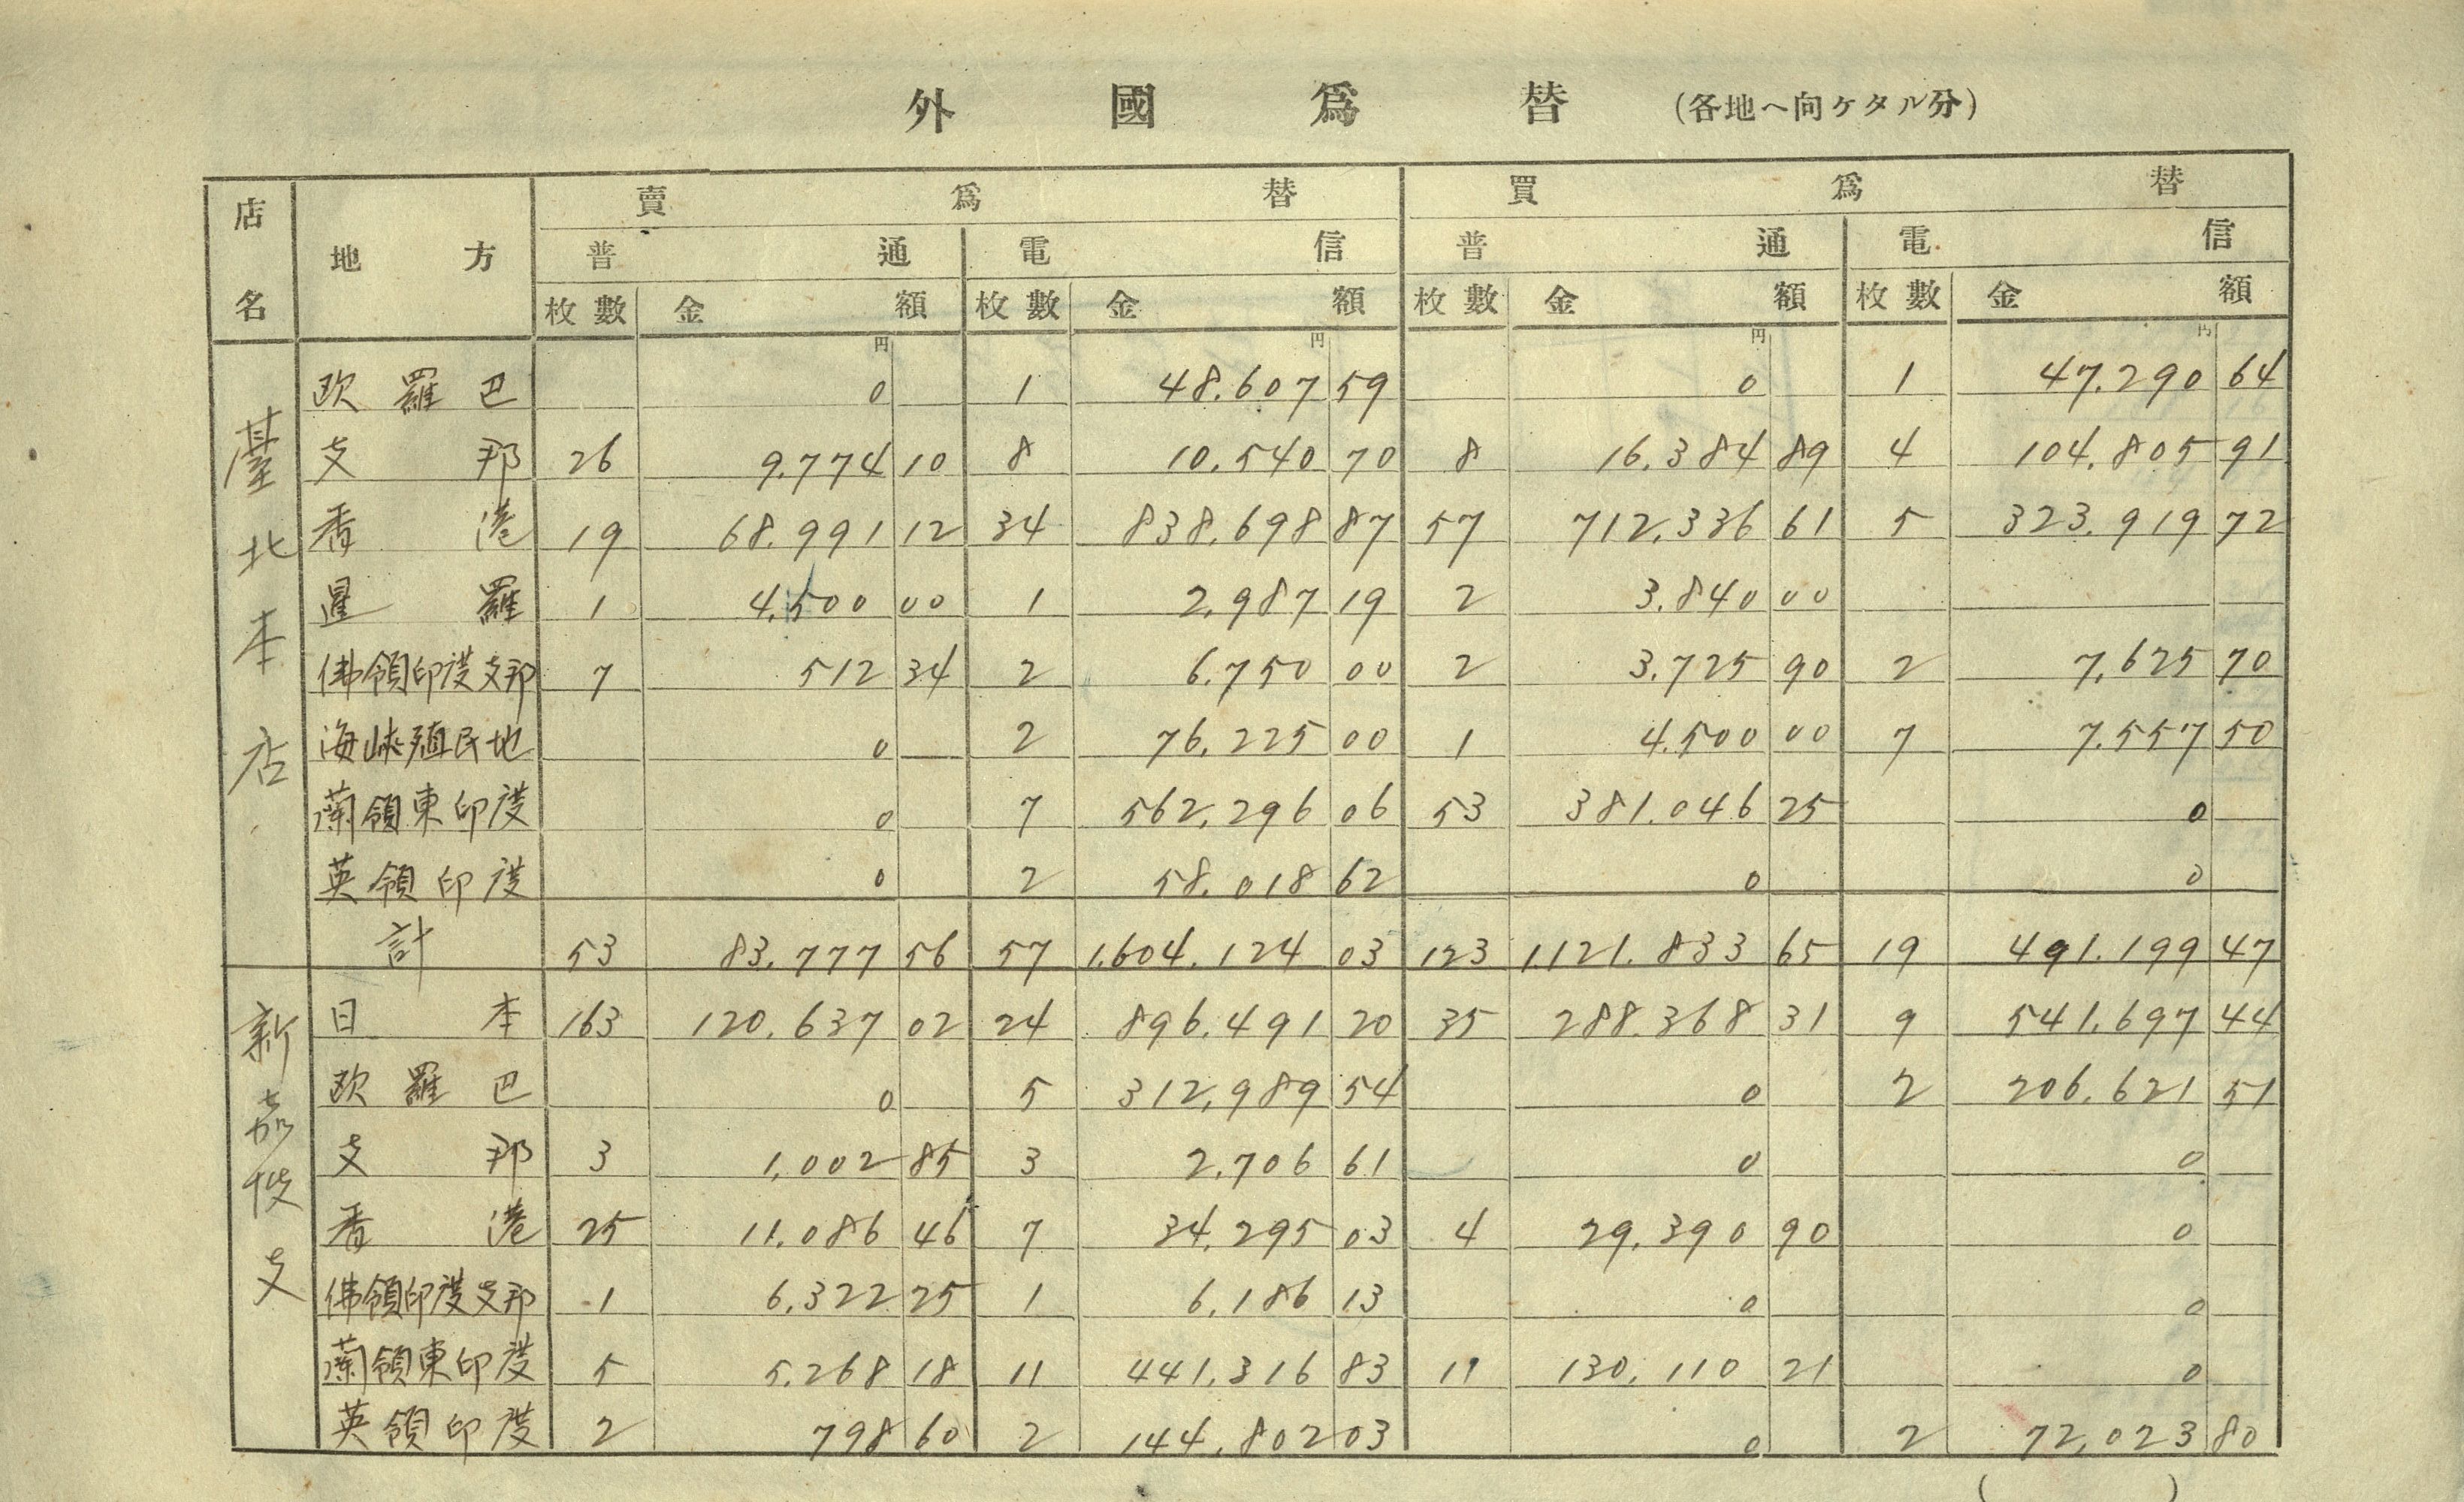 外國爲替 (各地へ向ケタル分)
店名 地方 賣爲替 買爲替
普通 電信 普通 電信
枚數 金額 枚數 金額 枚數 金額 枚數 金額
円 円 円 円
臺北本店
歐羅巴 0 1 48.607 59 0 1 47.290 64
支那 26 9.774 10 8 10.540 70 8 16.384 89 4 104.805 91
香港 19 68.991 12 34 838.698 87 57 712.336 61 5 323.919 72
暹羅 1 4.500 00 1 2.987 19 2 3.840 00
佛領印度支那 7 512 34 2 6.750 00 2 3.725 90 2 7.625 70
海峽殖民地 0 2 76.225 00 1 4.500 00 7 7.557 50
蘭領東印度 0 7 562.296 06 53 381.046 25 0
英領印度 0 2 58.018 62 0 0
計 53 83.777 56 57 1.604.124 03 123 1.121.833 65 19 491.199 47
新嘉坡支
日本 163 120.637 02 24 896.491 20 35 288.368 31 9 541.697 44
歐羅巴 0 5 312,989 54 0 2 206.621 51
支那 3 1,002 85 3 2.706 61 0 0
香港 25 11.086 46 7 34.295 03 4 29.390 90 0
佛領印度支那 1 6.322 25 1 6.186 13 0 0
蘭領東印度 5 5.268 18 11 441.316 83 11 130.110 21 0
英領印度 2 798 60 2 144.802 03 0 2 72,023 80
( )